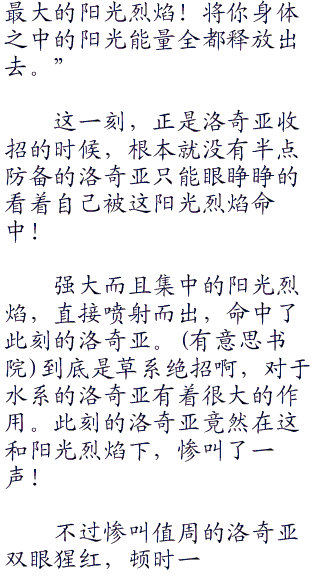 最大的阳光烈焰！将你身体
之中的阳光能量全都释放出
去。”
这一刻，正是洛奇亚收
招的时候，根本就没有半点
防备的洛奇亚只能眼睁睁的
看着自己被这阳光烈焰命
中！
强大而且集中的阳光烈
焰，直接喷射而出，命中了
此刻的洛奇亚。(有意思书
院)到底是草系绝招啊，对于
水系的洛奇亚有着很大的作
用。此刻的洛奇亚竟然在这
和阳光烈焰下，惨叫了一
声！
不过惨叫值周的洛奇亚
双眼猩红，顿时一